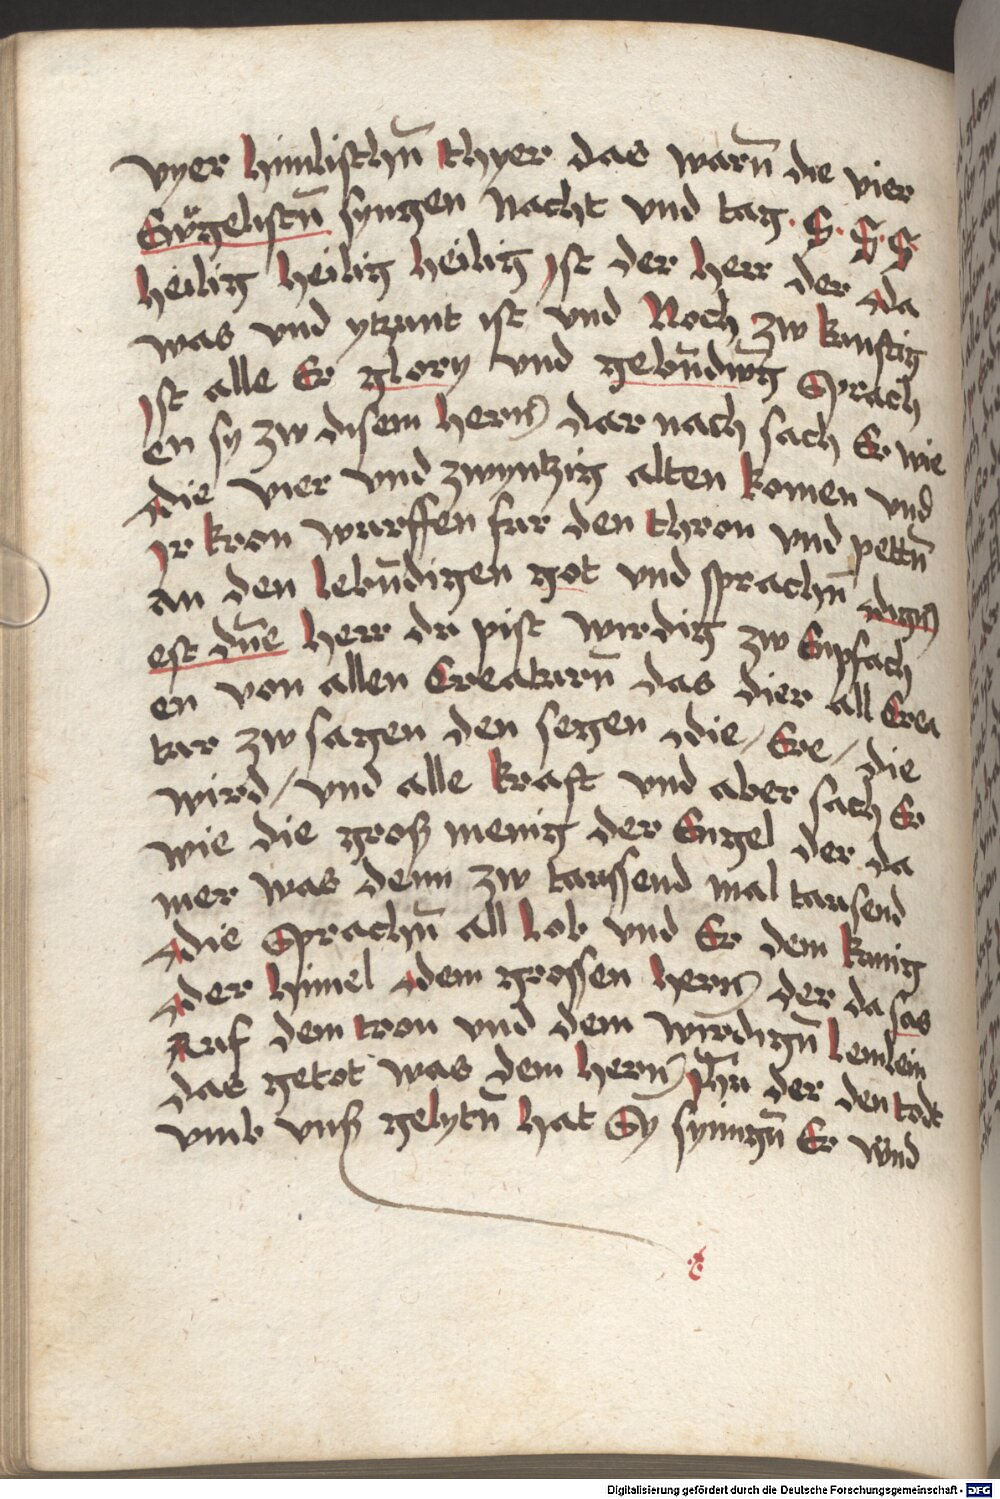 vyer himlisthn̄ thyer das warn̄ die vier
Ewͦgelistn̄ syngen Nacht vnd tag. S. S. S.
heilig heilig heilig jst der herr der da
was vnd ytzunt ist vnd Noch zw kunftig
jst alle Er glory vnd gebn̄dwḡ Sprach
en sy zw disem hern dar nach sach Er wie
die vier vnd zwyntzig alten komen vnd
jr kron wurffen fur den thron vnd pettn̄
an den lebn̄digen got vnd sprachn̄ dign
est dn̄e herr du pist wirdig zw Enpfach
en von allen Creaturn̄ das dier all Crea
tur zw sagen den segen die / Ere / die
wird / vnd alle kraft vnd aber sach Er
wie die groß menig der Engel der da
mer was denn zw taussend mal tausend
die Sprachn̄ all lob vnd Er dem kunig
der himel dem grossen hern der da sas
Auf dem tron vnd dem wirdign̄ lemlein
das getot was dem hern jhū der den todt
vmb vnß gelytn̄ hat Sy syningn̄ Er wnd
Digitalisierung gefördert durch die Deutsche Forschungsgemeinschaft - DFG